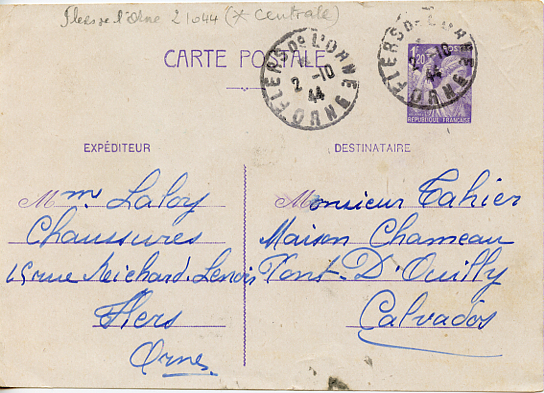 Flers de l'Orne 21044 (* centrale)
CARTE POSTALE
FLERS DE L'ORNE
2 -10
44
ORNE
FLERS DE L'ORNE
2 -10
44
ORNE
1F20
POSTES
RÉPUBLIQUE FRANÇAISE
EXPÉDITEUR
Mme Laloy
Chaussures
15 rue Richard-Lenoir
Flers
Orne
DESTINATAIRE
Monsieur Tahier
Maison Chameau
Pont-D'Ouilly
Calvados